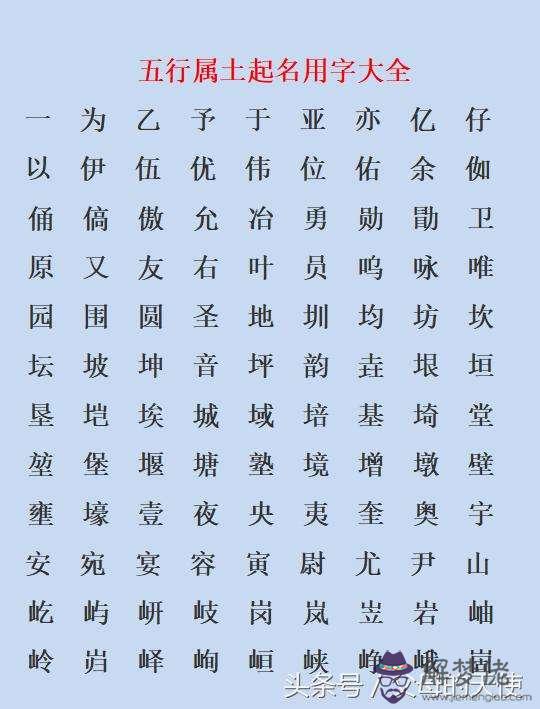 五行属土起名用字大全
一 为 乙 予 于 亚 亦 亿 仔
以 伊 伍 优 伟 位 佑 余 伽
俑 傐 傲 允 冶 勇 勋 勖 卫
原 又 友 右 叶 员 呜 咏 唯
园 围 圆 圣 地 圳 均 坊 坎
坛 坡 坤 音 坪 韵 垚 垠 垣
垦 垲 埃 城 域 培 基 埼 堂
堃 堡 堰 塘 塾 境 增 墩 壁
壅 壕 壹 夜 央 夷 奎 奥 宇
安 宛 宴 容 寅 尉 尤 尹 山
屹 屿 岍 岐 岗 岚 岦 岩 岫
岭 峄 峋 峘 峡 峥 峨
头条号 / 的天使
解梦佬
www.jiemenglao.com